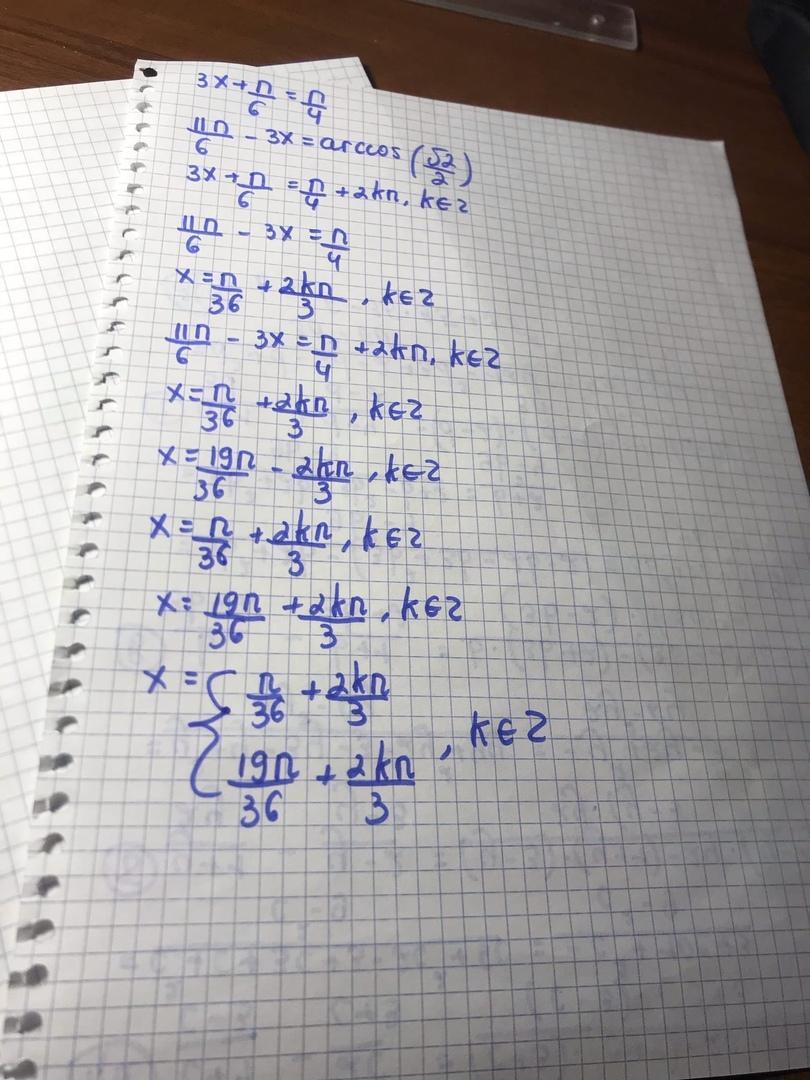 3x + π/6 = π/4
11π/6 - 3x = arccos (√2/2)
3x + π/6 = π/4 + 2kπ, k∈Z
11π/6 - 3x = π/4
x = π/36 + 2kπ/3, k∈Z
11π/6 - 3x = π/4 + 2kπ, k∈Z
x = π/36 + 2kπ/3, k∈Z
x = 19π/36 - 2kπ/3, k∈Z
x = π/36 + 2kπ/3, k∈Z
x = 19π/36 + 2kπ/3, k∈Z
x = { π/36 + 2kπ/3
19π/36 + 2kπ/3, k∈Z